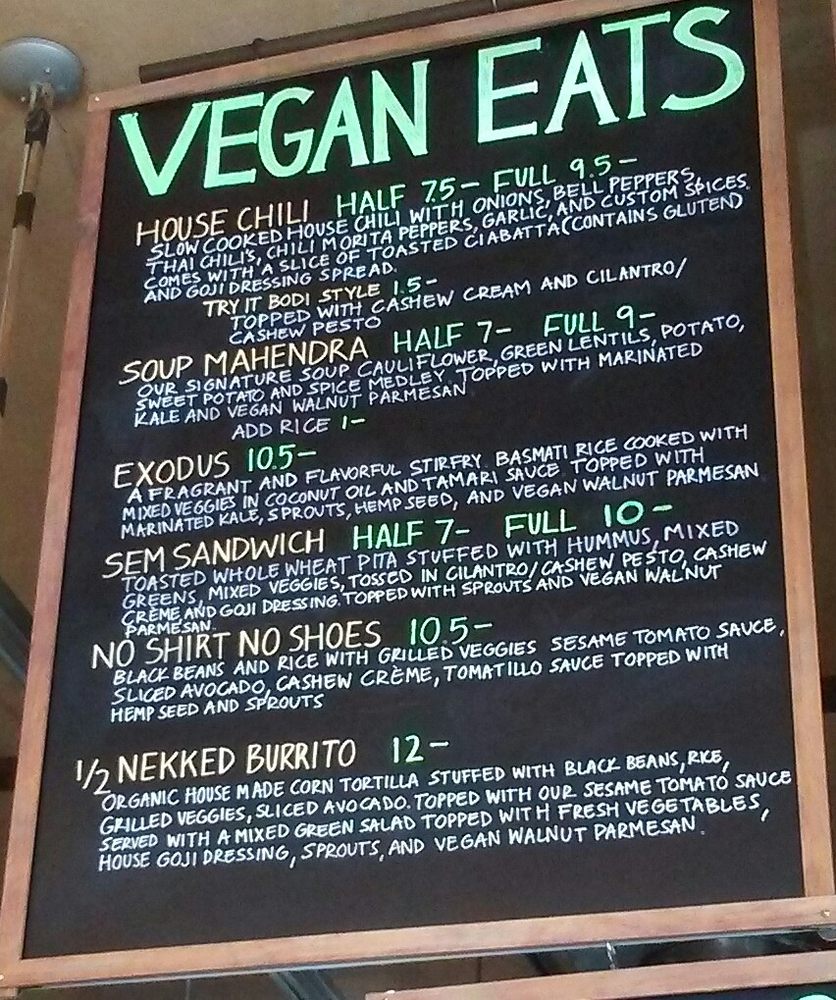 VEGAN EATS
HOUSE CHILI HALF 7.5- FULL 9.5-
SLOW COOKED HOUSE CHILI WITH ONIONS, BELL PEPPERS,
THAI CHILI'S, CHILI MORITA PEPPERS, GARLIC, AND CUSTOM SPICES.
COMES WITH A SLICE OF TOASTED CIABATTA (CONTAINS GLUTEN)
AND GOJI DRESSING SPREAD.
TRY IT BODI STYLE 1.5-
TOPPED WITH CASHEW CREAM AND CILANTRO/
CASHEW PESTO
SOUP MAHENDRA HALF 7- FULL 9-
OUR SIGNATURE SOUP CAULIFLOWER, GREEN LENTILS, POTATO,
SWEET POTATO AND SPICE MEDLEY TOPPED WITH MARINATED
KALE AND VEGAN WALNUT PARMESAN
ADD RICE 1-
EXODUS 10.5-
A FRAGRANT AND FLAVORFUL STIRFRY. BASMATI RICE COOKED WITH
MIXED VEGGIES IN COCONUT OIL AND TAMARI SAUCE TOPPED WITH
MARINATED KALE, SPROUTS, HEMP SEED, AND VEGAN WALNUT PARMESAN
SEM SANDWICH HALF 7- FULL 10-
TOASTED WHOLE WHEAT PITA STUFFED WITH HUMMUS, MIXED
GREENS, MIXED VEGGIES, TOSSED IN CILANTRO/CASHEW PESTO, CASHEW
CRÈME, AND GOJI DRESSING. TOPPED WITH SPROUTS AND VEGAN WALNUT
PARMESAN.
NO SHIRT NO SHOES 10.5-
BLACK BEANS AND RICE WITH GRILLED VEGGIES SESAME TOMATO SAUCE,
SLICED AVOCADO, CASHEW CRÈME, TOMATILLO SAUCE TOPPED WITH
HEMP SEED AND SPROUTS
1/2 NEKKED BURRITO 12-
ORGANIC HOUSE MADE CORN TORTILLA STUFFED WITH BLACK BEANS, RICE,
GRILLED VEGGIES, SLICED AVOCADO. TOPPED WITH OUR SESAME TOMATO SAUCE
SERVED WITH A MIXED GREEN SALAD TOPPED WITH FRESH VEGETABLES,
HOUSE GOJI DRESSING, SPROUTS, AND VEGAN WALNUT PARMESAN.